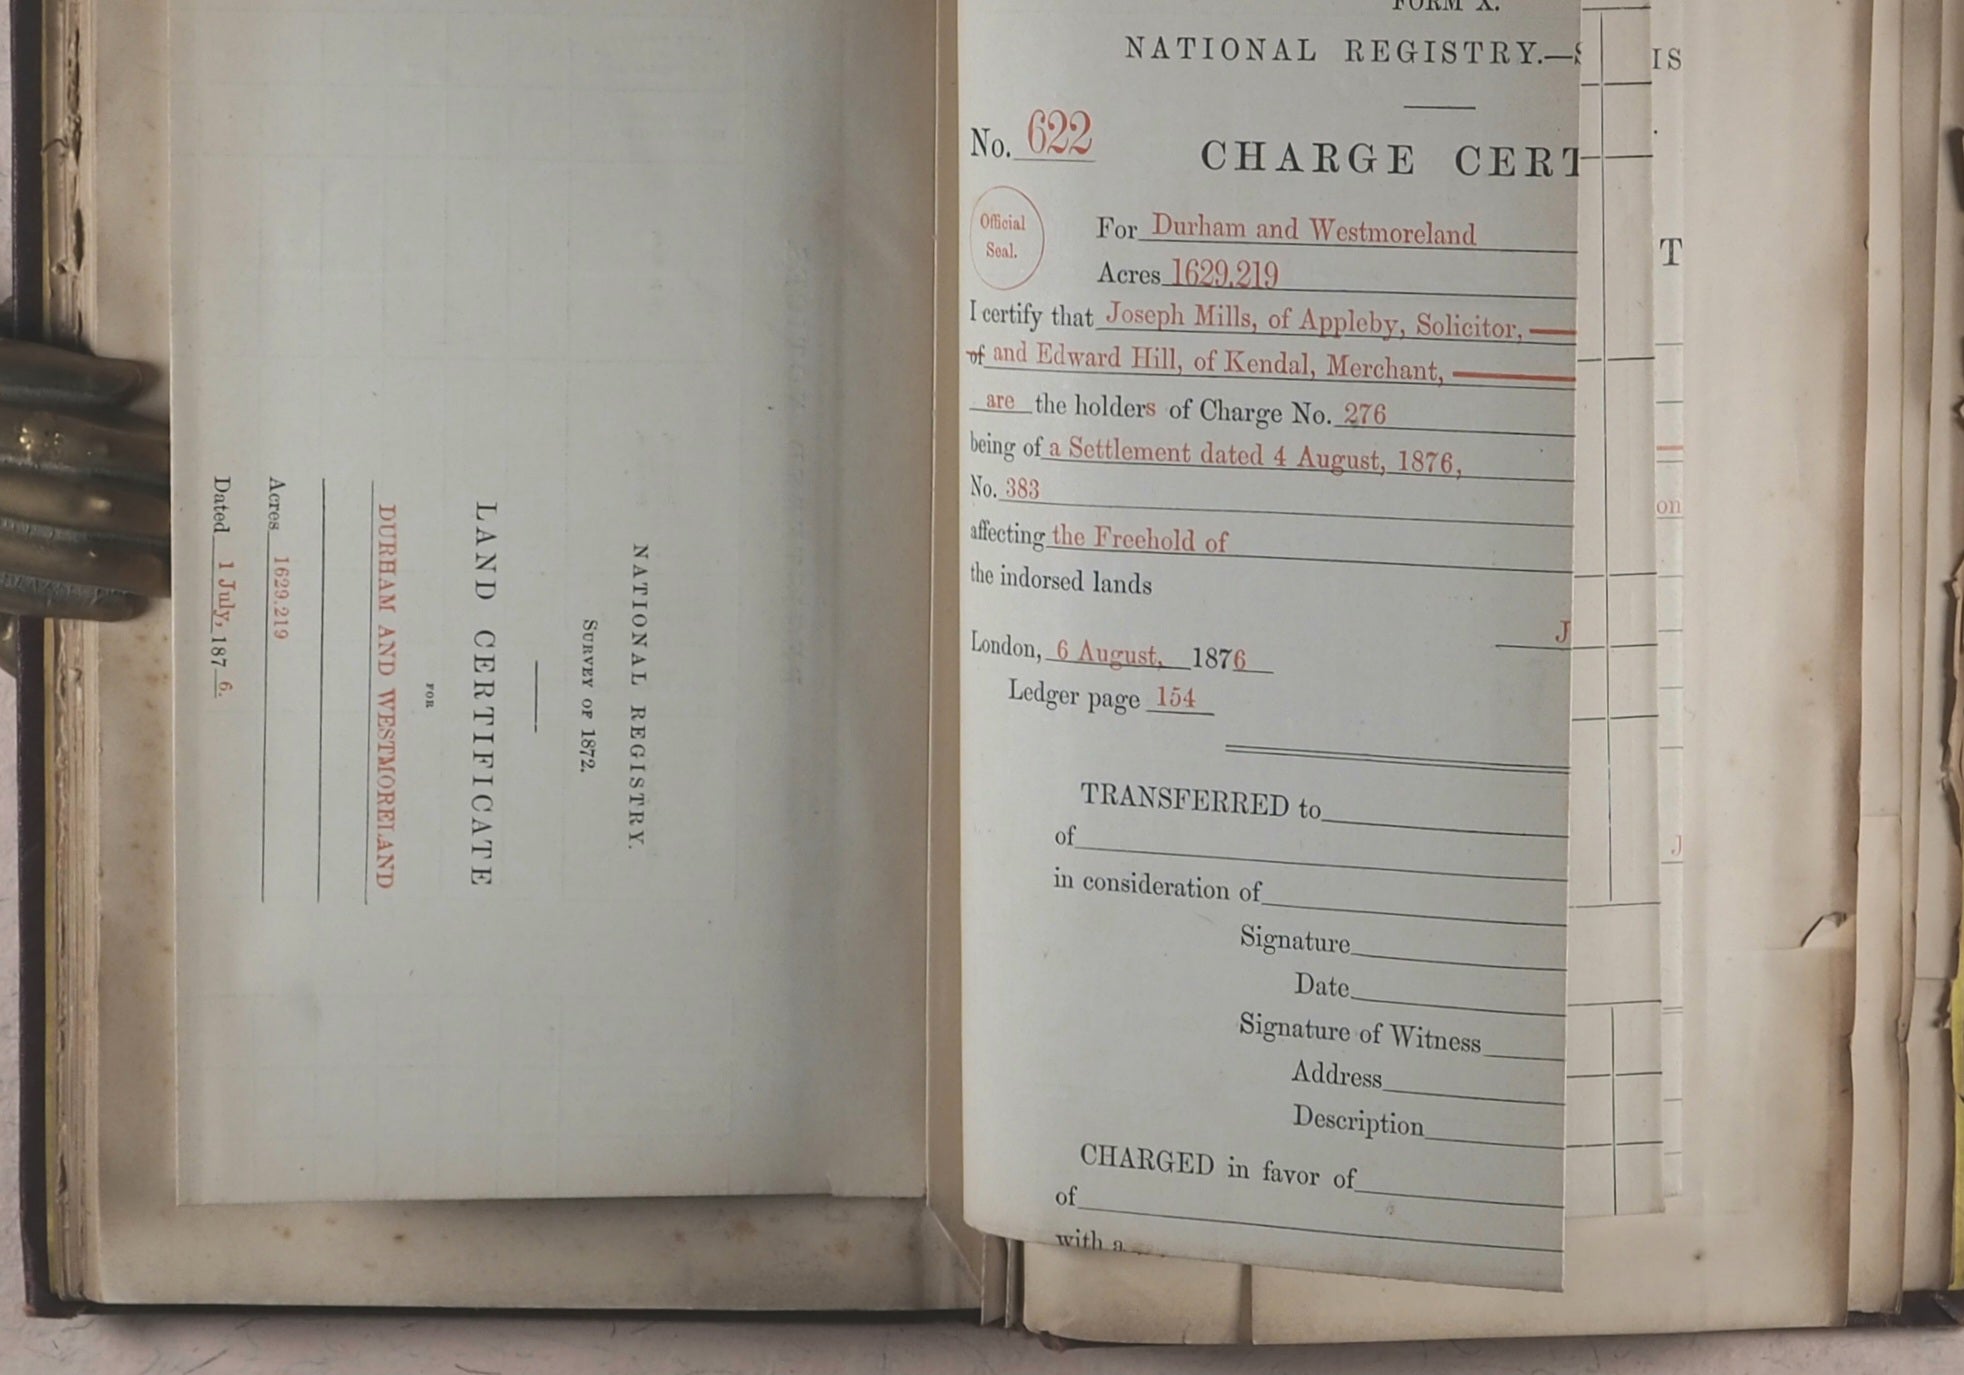 NATIONAL REGISTRY.
SURVEY OF 1872.
LAND CERTIFICATE
FOR
DURHAM AND WESTMORELAND
Acres 1629.219
Dated 1 July, 1876.
FORM X.
NATIONAL REGISTRY.—
No. 622
CHARGE CERT
Official
Seal.
For Durham and Westmoreland
Acres 1629.219
I certify that Joseph Mills, of Appleby, Solicitor,
of and Edward Hill, of Kendal, Merchant,
are the holders of Charge No. 276
being of a Settlement dated 4 August, 1876,
No. 383
affecting the Freehold of
the indorsed lands
J
London, 6 August, 1876
Ledger page 154
TRANSFERRED to
of
in consideration of
Signature
Date
Signature of Witness
Address
Description
CHARGED in favor of
of
with a
IS
T
on
J